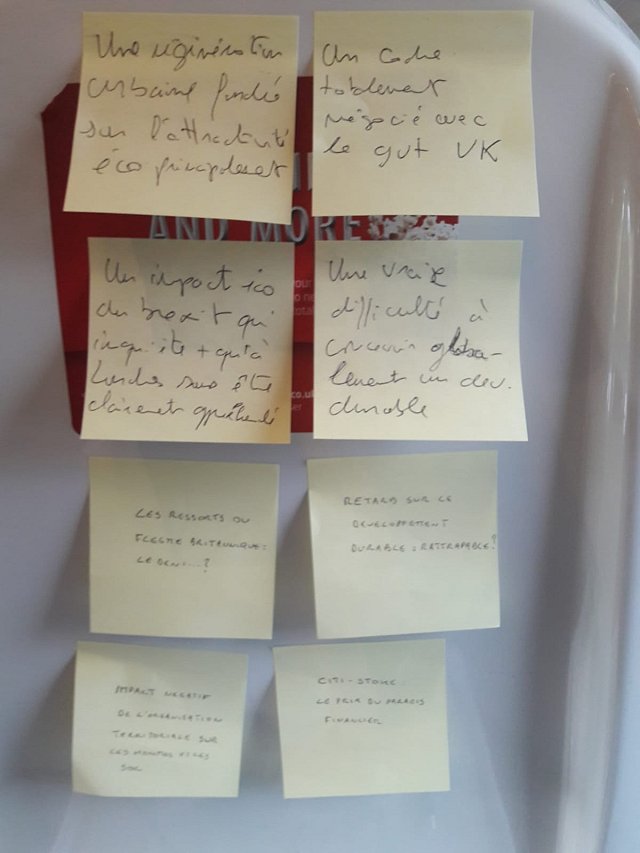 Une régénération
urbaine fondée
sur l'attractivité
éco principalement
Un cadre
totalement
négocié avec
le gvt UK
AND MORE
Un impact éco
du brexit qui
inquiète + qu'à
Londres sans être
clairement appréhendé
Une vraie
difficulté à
concevoir globa-
lement un dev.
durable
co.uk
LES RESSORTS DU
FLEGME BRITANNIQUE :
LE DENI...?
RETARD SUR LE
DEVELOPPEMENT
DURABLE : RATTRAPABLE?
IMPACT NEGATIF
DE L'ORGANISATION
TERRITORIALE SUR
LES
CITI-STOKE
LE PRIX DU PARADIS
FINANCIER